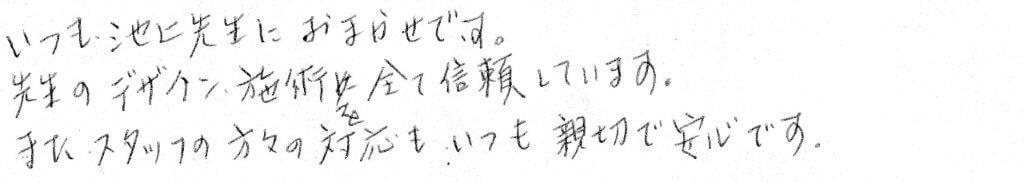 いつも池上先生におまらせです。
先生のデザイン施術を全て信頼しています。
また、スタッフの方々の対応も、いつも親切で安心です。